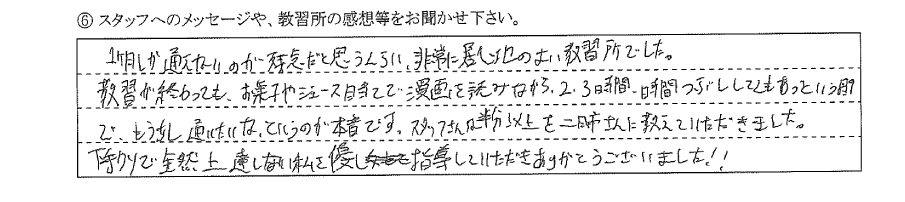 ⑥ スタッフへのメッセージや、教習所の感想等をお聞かせ下さい。
1ヶ月しか通えないのが残念だと思うくらい、非常に居心地のよい教習所でした。
教習が終わっても、お菓子やジュース目当てで漫画を読みながら、2、3時間、時間つぶししてもあっという間
で、もう少し通いたいな、というのが本音です。スタッフさんは 以上を 教えていただきました。
下手クソで全然上達しない私を優しく指導していただきありがとうございました!!